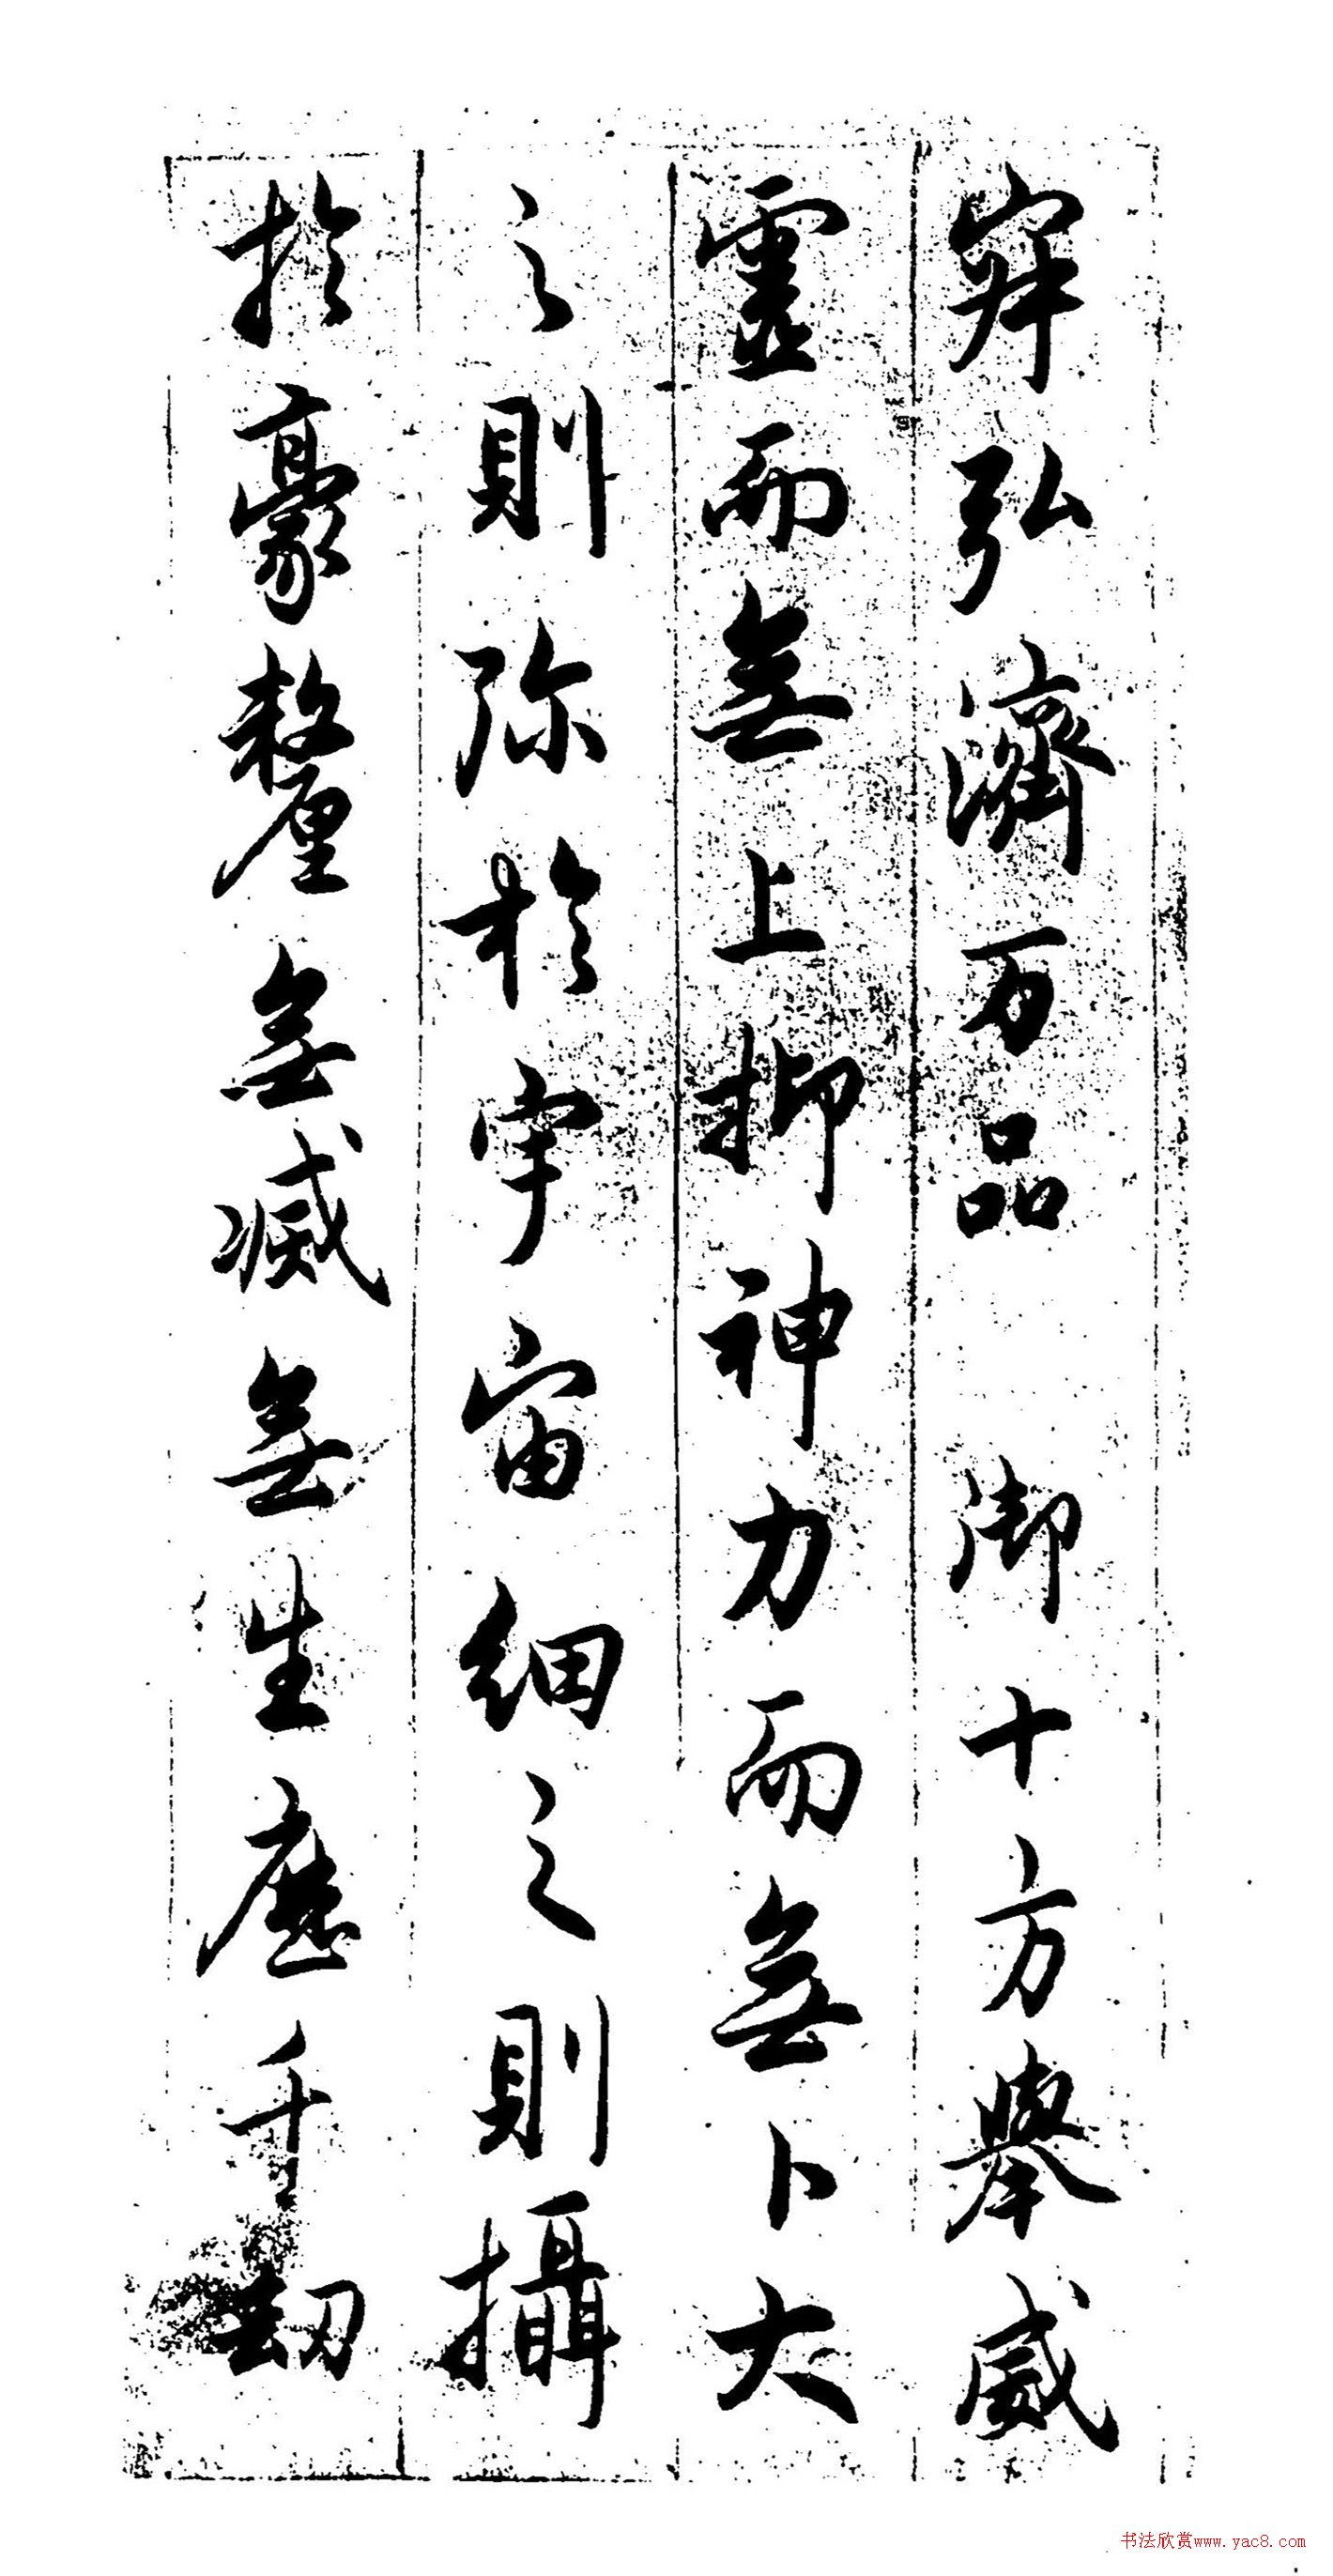 寂弘濟万品御十方舉威
靈而無上抑神力而無下大
之則弥於宇宙細之則攝
於豪釐無滅無生歷千劫
书法欣赏www.yac8.com